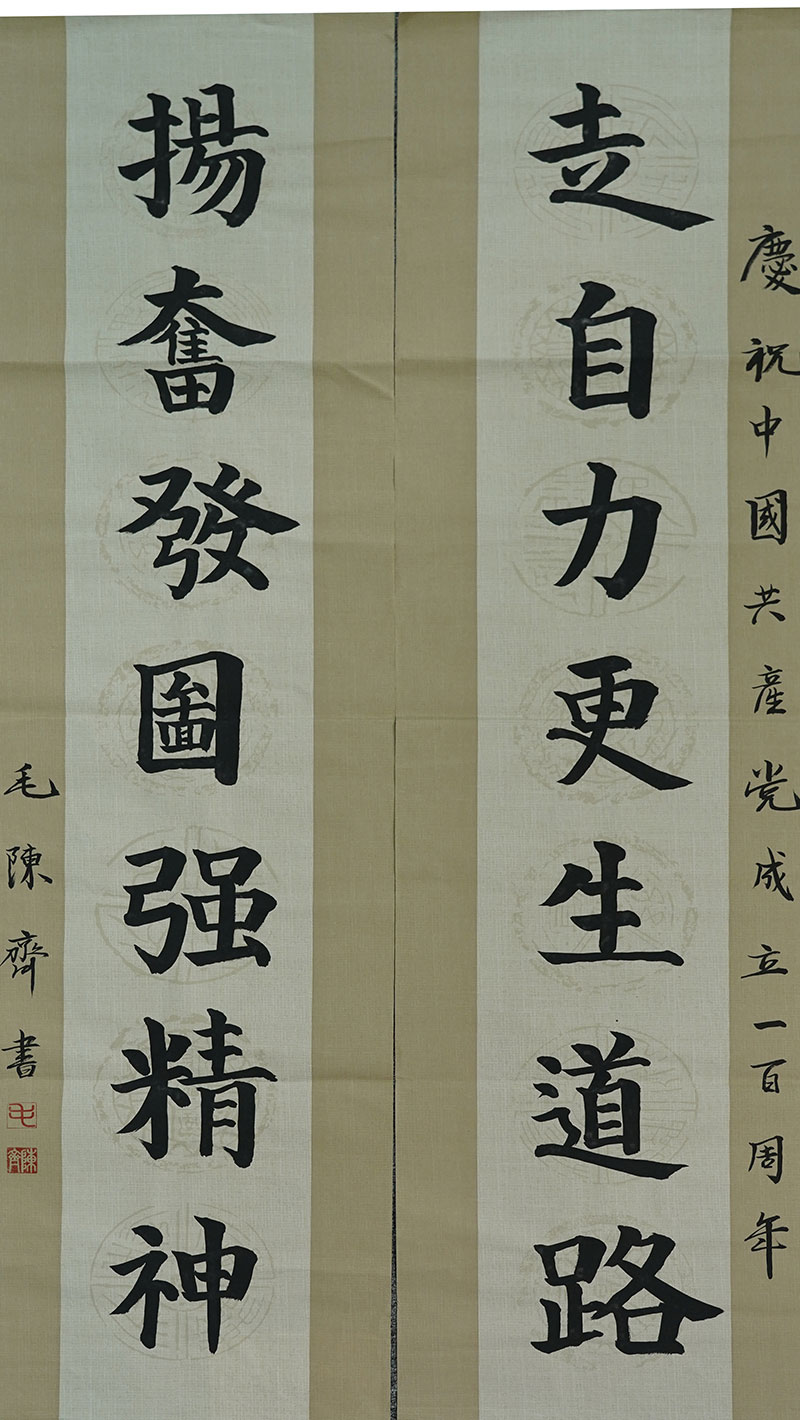 慶祝中國共產党成立一百周年
走自力更生道路
揚奮發圖强精神
毛陳齊書
陳齊